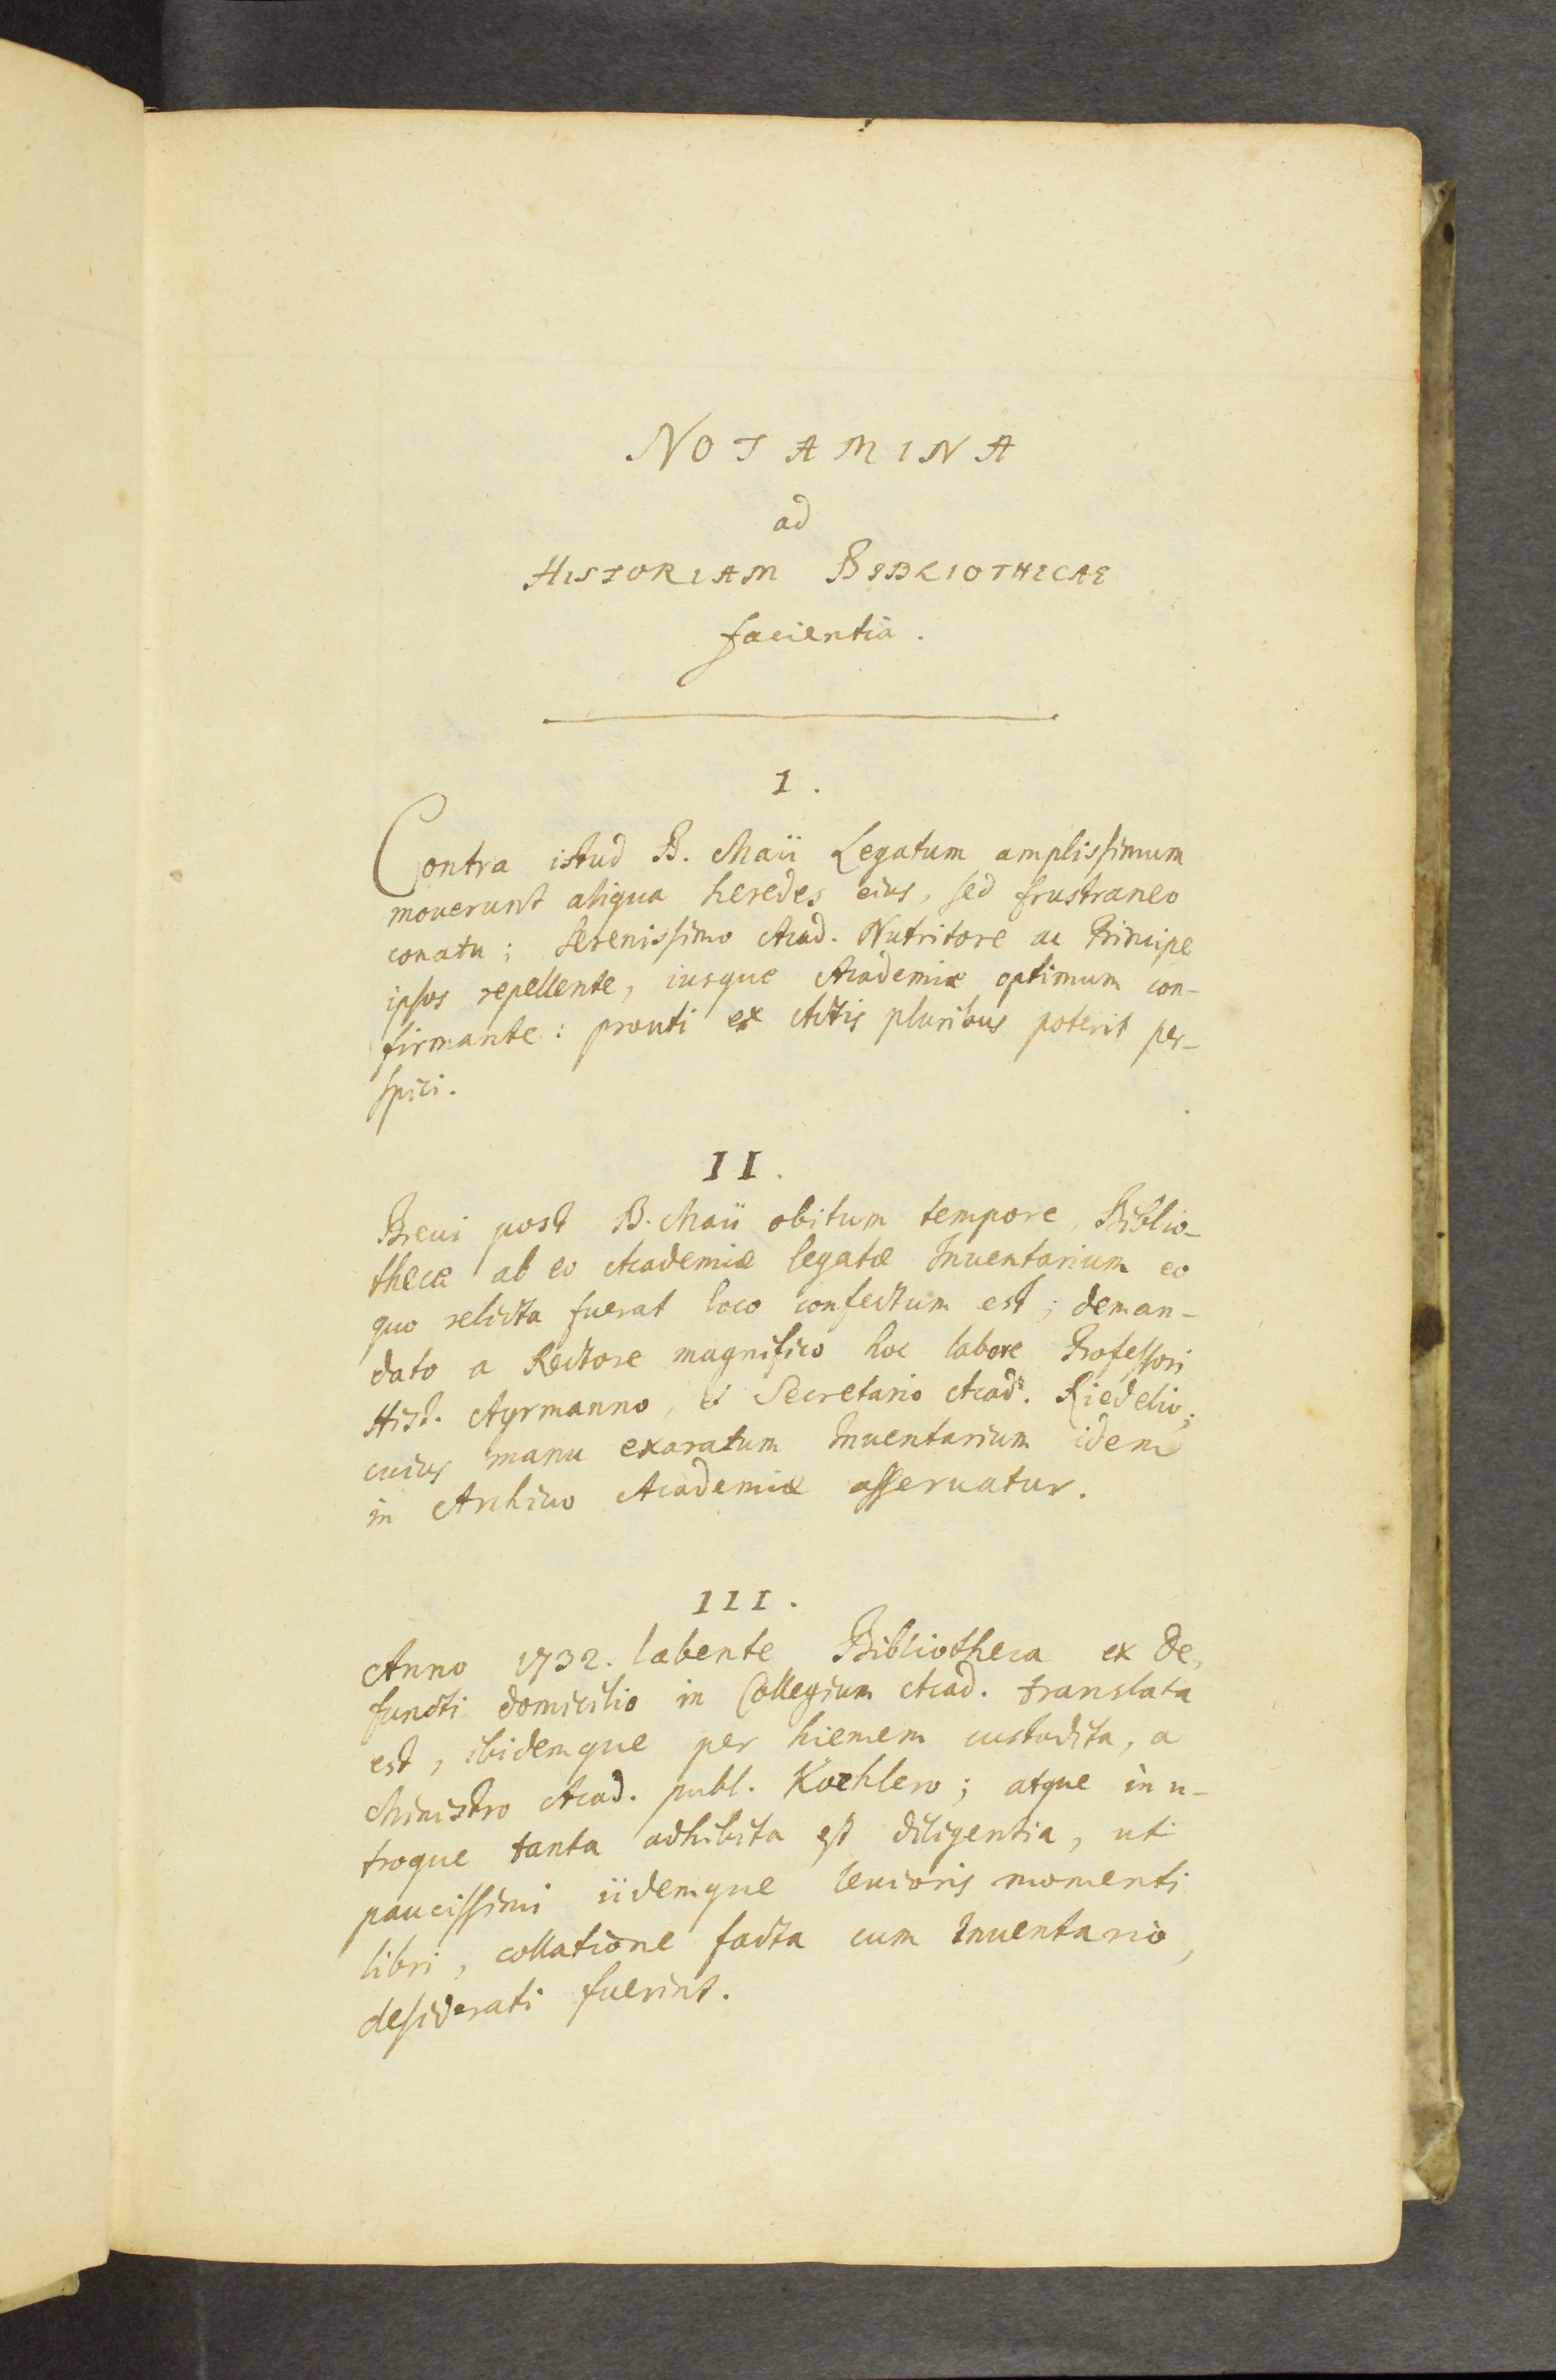 NOTAMINA
ad
HISTORIAM BIBLIOTHECAE
facientia.
I.
Contra istud B. Maii Legatum amplissimum
mouerunt aliqua heredes eius, sed frustraneo
conatu; Serenissimo Acad. Nutritore ac Principe
ipsos repellente, iusque Academiæ optimum con-
firmante: prouti ex Actis pluribus poterit per-
spici.
II.
Breui post B. Maii obitum tempore, Biblio-
thecæ ab eo Academiæ legatæ Inuentarium eo
quo relicta fuerat loco confectum est; deman-
dato a Rectore magnifico hoc labore Professori
Hist. Ayrmanno, & Secretario Acad. Riedelio;
cuius manu exaratum Inuentarium idem
in Archiuo Academiæ asseruatur.
III.
Anno 1732. labente Bibliotheca ex de,
functi domicilio in Collegium Acad. translata
est, ibidemque per hiemem custodita, a
Ministro Acad. publ. Koehlero; atque in u-
troque tanta adhibita est diligentia, ut
paucissimi iidemque leuioris momenti
libri, collatione facta cum Inuentario,
desiderati fuerint.